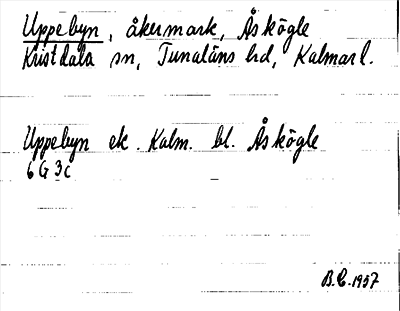 Uppebyn, åkermark, Åskögle
Kristdala sn, Tunaläns hd, Kalmar l.
Uppebyn ek. Kalm. bl. Åskögle
6 G 3c
B.E. 1957